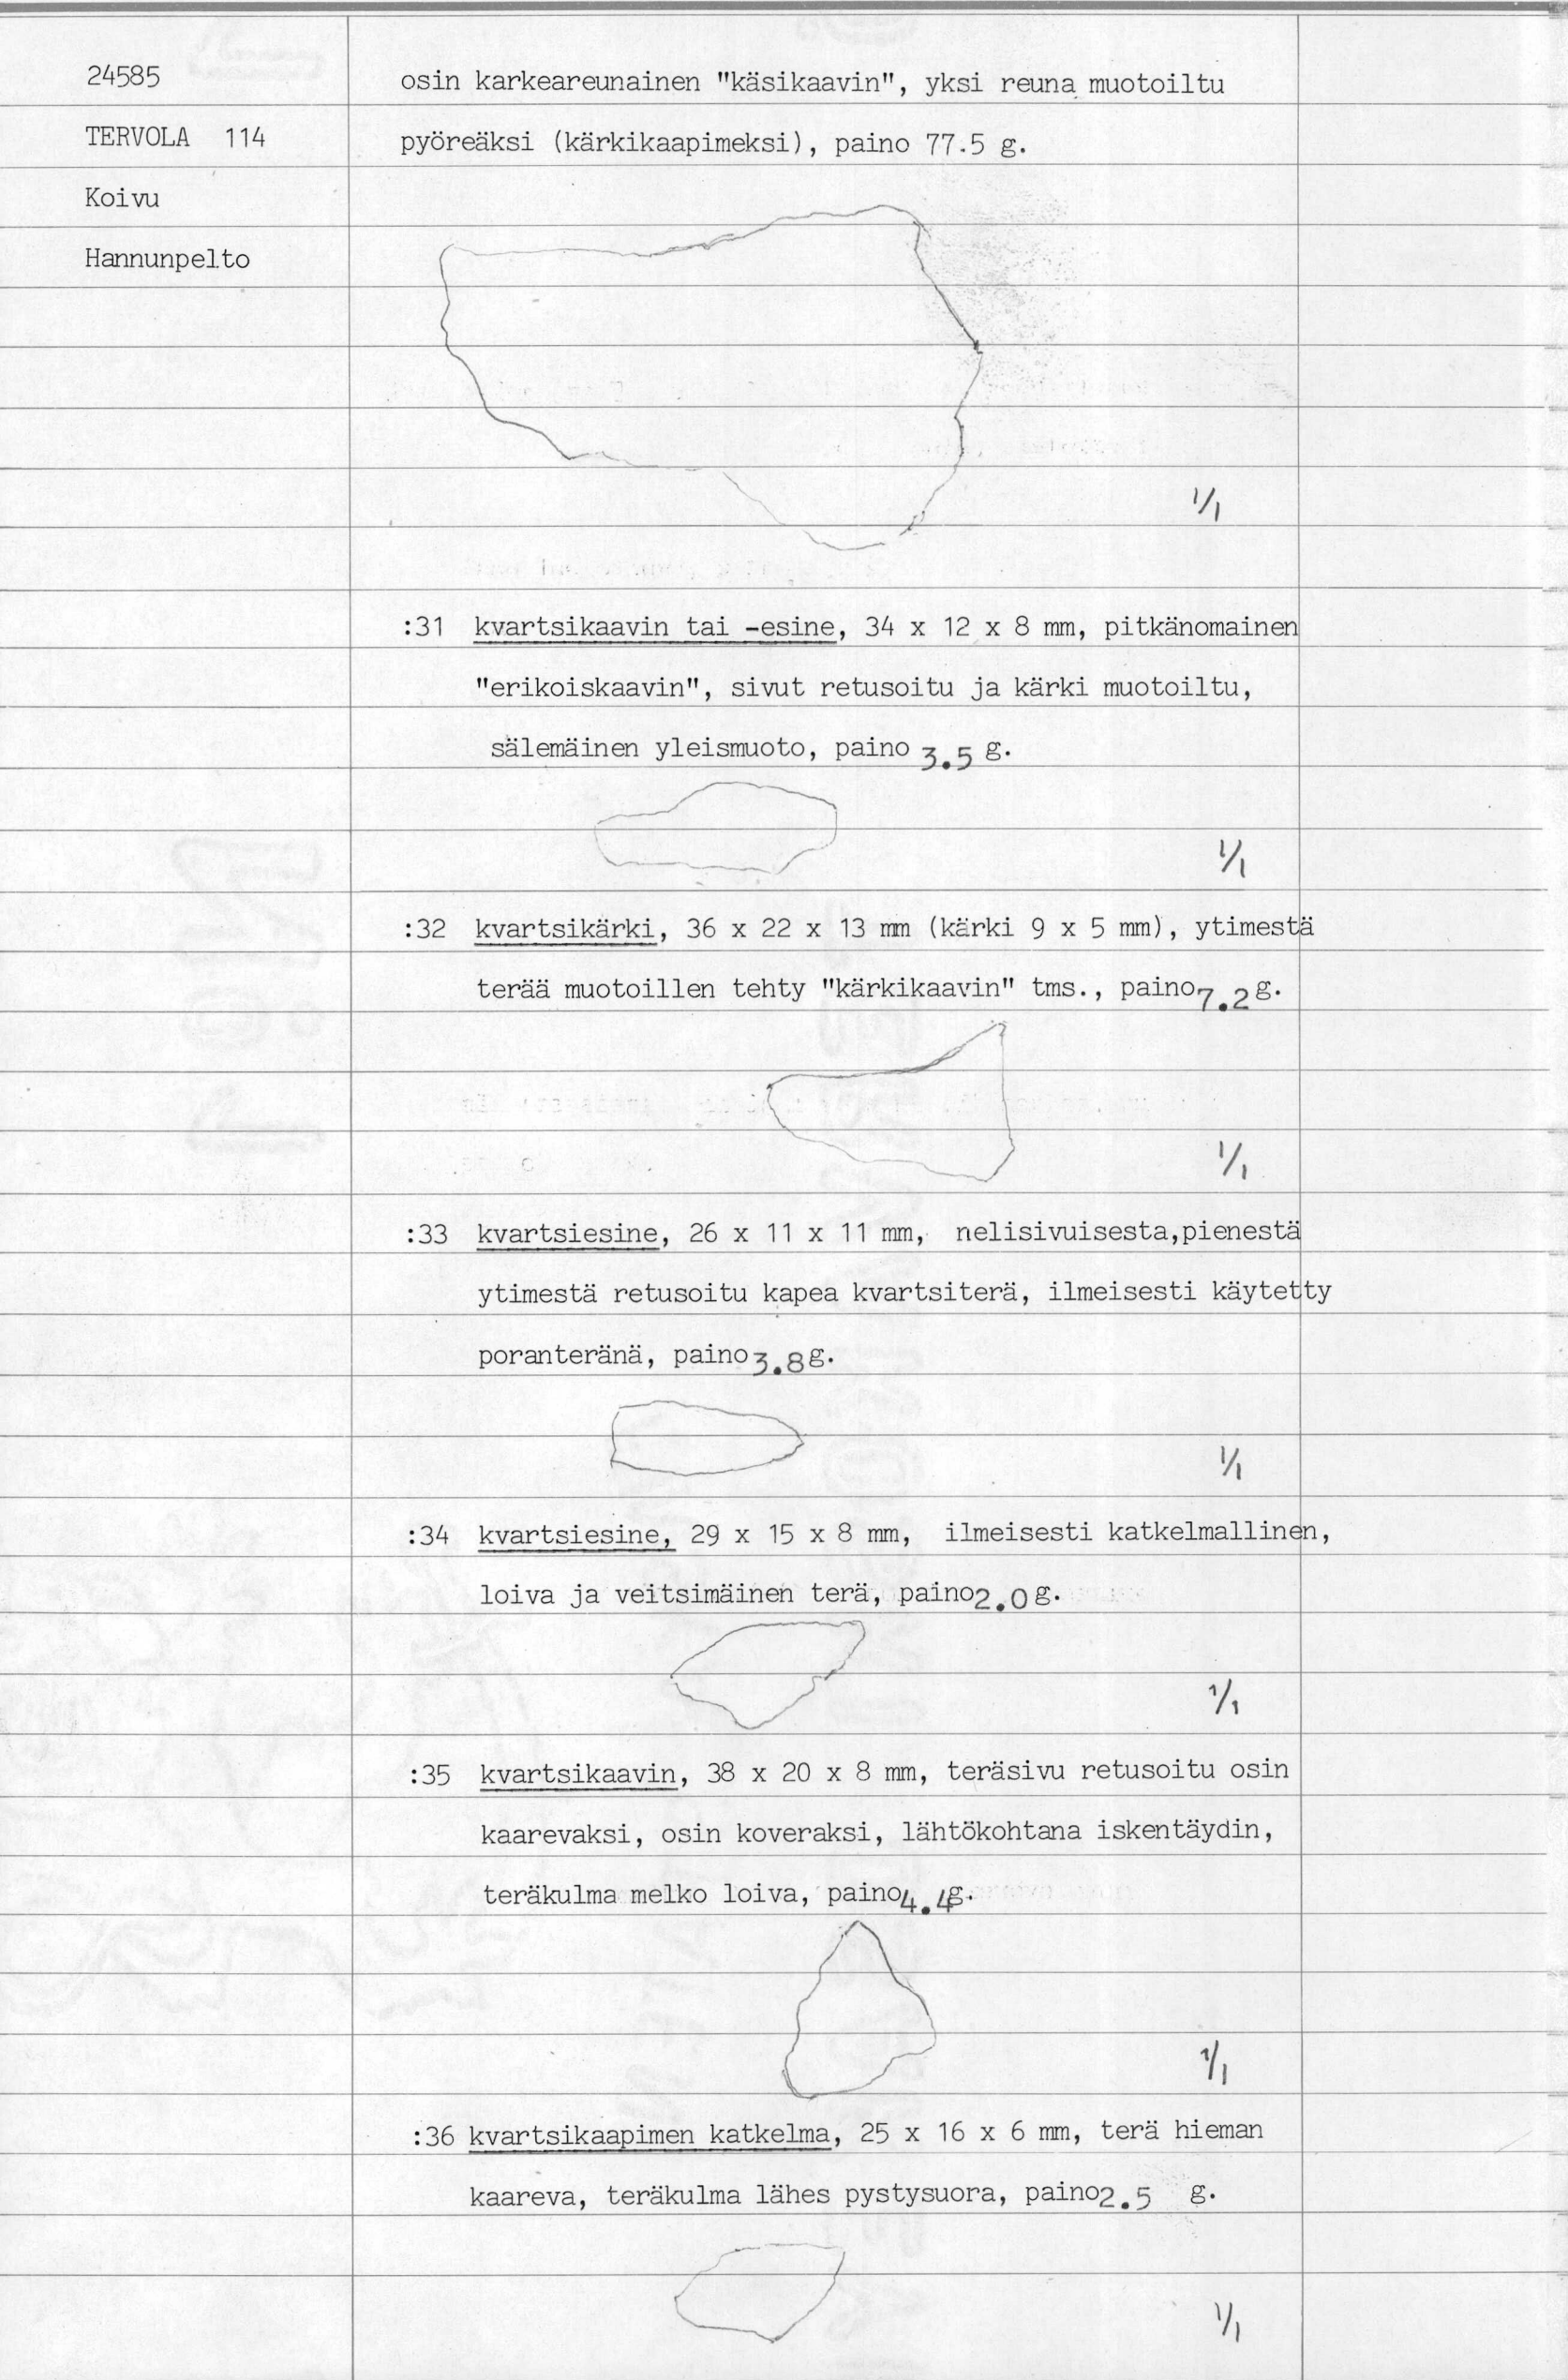 24585
TERVOLA 114
Koivu
Hannunpelto
osin karkeareunainen "käsikaavin", yksi reuna muotoiltu
pyöreäksi (kärkikaapimeksi), paino 77.5 g.
1/1
:31 kvartsikaavin tai -esine, 34 x 12 x 8 mm, pitkänomainen
"erikoiskaavin", sivut retusoitu ja kärki muotoiltu,
sälemäinen yleismuoto, paino 3.5 g.
1/1
:32 kvartsikärki, 36 x 22 x 13 mm (kärki 9 x 5 mm), ytimestä
terää muotoillen tehty "kärkikaavin" tms., paino 7.2 g.
1/1
:33 kvartsiesine, 26 x 11 x 11 mm, nelisivuisesta,pienestä
ytimestä retusoitu kapea kvartsiterä, ilmeisesti käytetty
poranteränä, paino 3.8 g.
1/1
:34 kvartsiesine, 29 x 15 x 8 mm, ilmeisesti katkelmallinen,
loiva ja veitsimäinen terä, paino 2.0 g.
1/1
:35 kvartsikaavin, 38 x 20 x 8 mm, teräsivu retusoitu osin
kaarevaksi, osin koveraksi, lähtökohtana iskentäydin,
teräkulma melko loiva, paino 4.4 g.
1/1
:36 kvartsikaapimen katkelma, 25 x 16 x 6 mm, terä hieman
kaareva, teräkulma lähes pystysuora, paino 2.5 g.
1/1